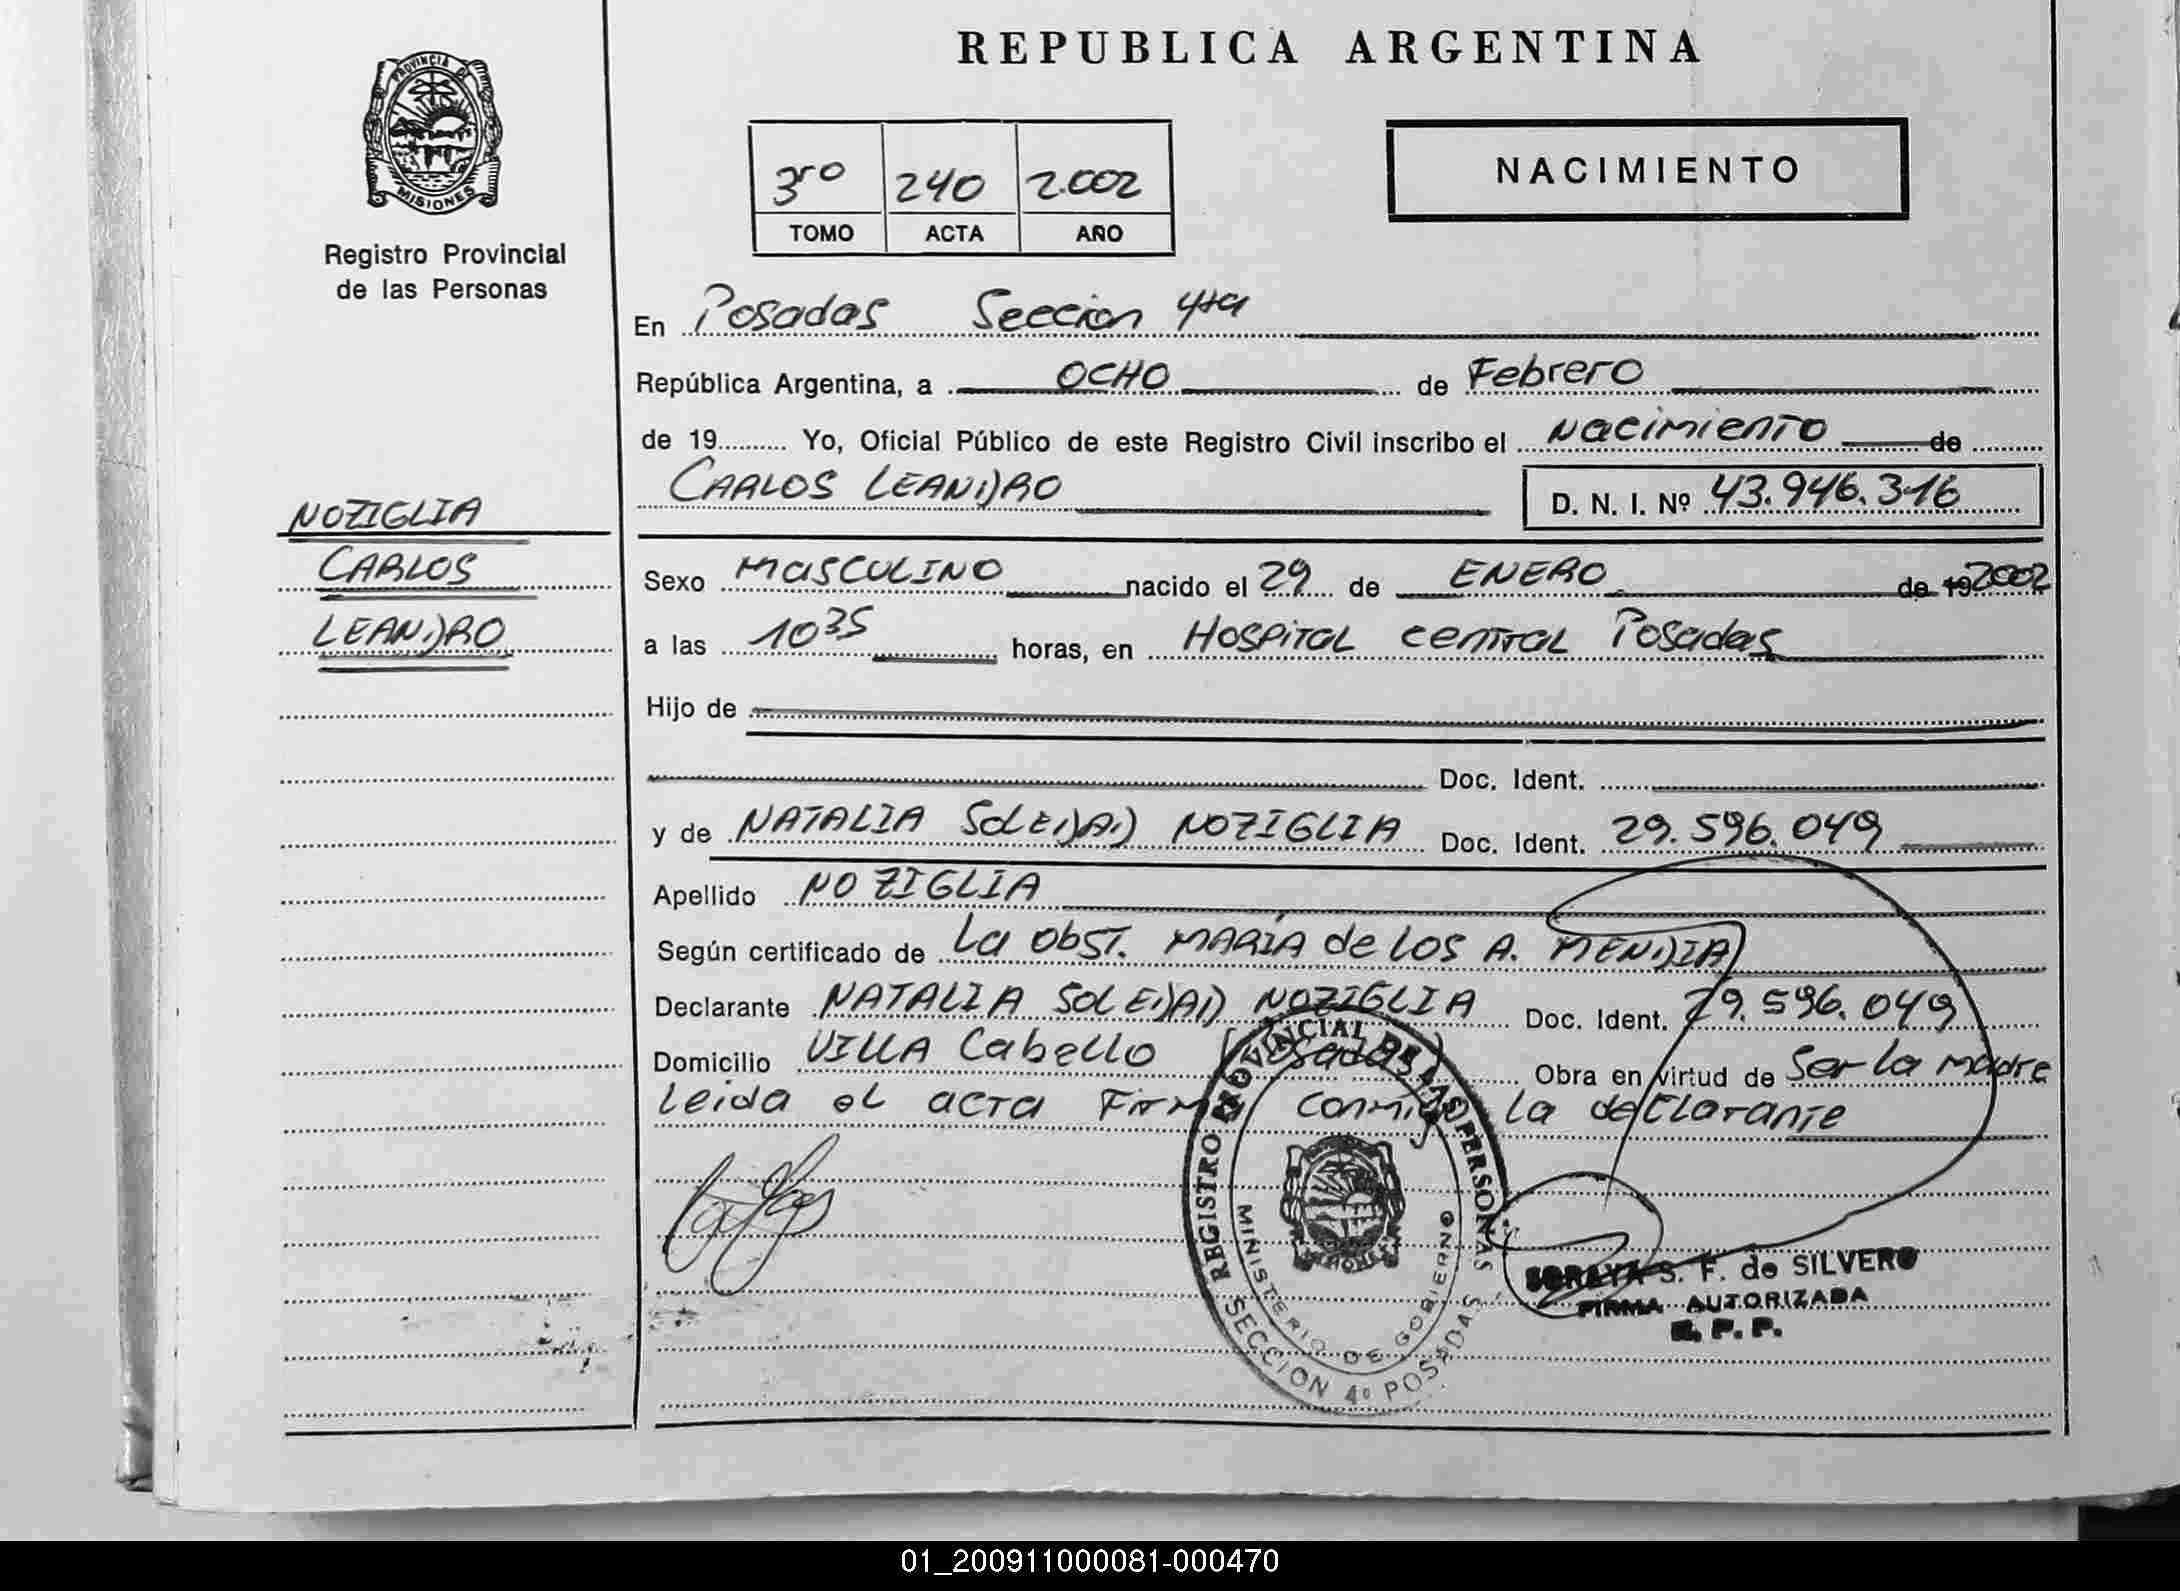 REPUBLICA ARGENTINA
PROVINCIA DE
MISIONES
Registro Provincial
de las Personas
3ro 240 2.002
TOMO ACTA AÑO
NACIMIENTO
En Posadas Seccion 4ta
República Argentina, a OCHO de Febrero
de 19.......... Yo, Oficial Público de este Registro Civil inscribo el Nacimiento de
CARLOS LEANDRO
D. N. I. Nº 43.946.316
NOZIGLIA
CARLOS
LEANDRO
Sexo MASCULINO nacido el 29 de ENERO de 19 2002
a las 10 35 horas, en HOSPITAL CENTRAL Posadas
Hijo de
Doc. Ident.
y de NATALIA SOLEDAD NOZIGLIA Doc. Ident. 29.596.049
Apellido NOZIGLIA
Según certificado de La obst. MARÍA de LOS A. MENDIA
Declarante NATALIA SOLEDAD NOZIGLIA Doc. Ident. 29.596.049
Domicilio VILLA Cabello (Posadas) Obra en virtud de Ser la madre
Leida el acta Firma conmigo la declarante
REGISTRO PROVINCIAL DE LAS PERSONAS
MINISTERIO DE GOBIERNO
SECCION 4º POSADAS
SORAYA S. F. de SILVERO
FIRMA AUTORIZADA
R. P. P.
01_200911000081-000470